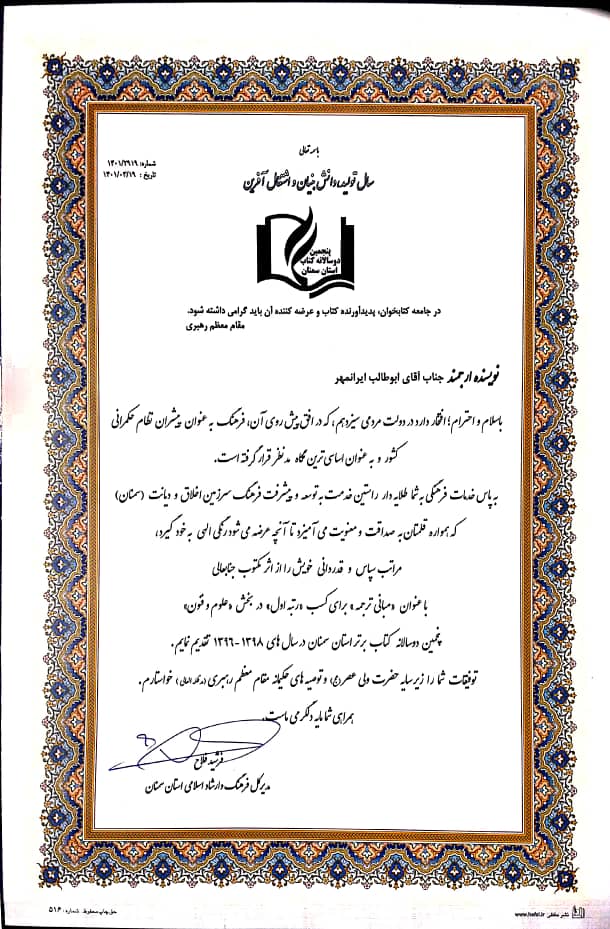 باسمه تعالی
شماره: ۱۴۰۱/۲۹۱۹
تاریخ : ۱۴۰۱/۰۳/۱۹
سال تولید، دانش بنیان و اشتغال آفرین
پنجمین
دوسالانه کتاب
استان سمنان
در جامعه کتابخوان، پدیدآورنده کتاب و عرضه کننده آن باید گرامی داشته شود.
مقام معظم رهبری
نویسنده ارجمند جناب آقای ابوطالب ایرانمهر
با سلام و احترام؛ افتخار دارد در دولت مردمی سیزدهم، که در افق پیش روی آن، فرهنگ به عنوان پیشران نظام حکمرانی
کشور و به عنوان اساسی ترین نگاه مدنظر قرار گرفته است.
به پاس خدمات فرهنگی به شما طلایه دار راستین خدمت به توسعه و پیشرفت فرهنگ سرزمین اخلاق و دیانت (سمنان)
که همواره قلمتان به صداقت و معنویت می آمیزد تا آنچه عرضه می شود رنگی الهی به خود گیرد،
مراتب سپاس و قدردانی خویش را از اثر مکتوب جنابعالی
با عنوان «مبانی ترجمه» برای کسب «رتبه اول» در بخش «علوم و فنون»
پنجمین دوسالانه کتاب برتر استان سمنان در سال های ۱۳۹۸-۱۳۹۶ تقدیم نمایم.
توفیقات شما را زیر سایه حضرت ولی عصر(عج) و توصیه های حکیمانه مقام معظم رهبری (مدظله العالی) خواستارم.
همراهی شما مایه دلگرمی ماست.
فرشید فلاح
مدیرکل فرهنگ و ارشاد اسلامی استان سمنان
حق چاپ محفوظ. شماره: ۵۱۶
www.hafef.ir